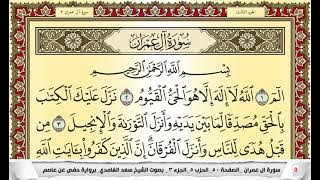 سُورَةُ آلِ عِمْرَانَ
بِسْمِ اللَّهِ الرَّحْمَٰنِ الرَّحِيمِ
الٓمٓ ١ اللَّهُ لَا إِلَٰهَ إِلَّا هُوَ الْحَيُّ الْقَيُّومُ ٢ نَزَّلَ عَلَيْكَ الْكِتَابَ
بِالْحَقِّ مُصَدِّقًا لِّمَا بَيْنَ يَدَيْهِ وَأَنزَلَ التَّوْرَىٰةَ وَالْإِنجِيلَ ٣ مِن
قَبْلُ هُدًى لِّلنَّاسِ وَأَنزَلَ الْفُرْقَانَ إِنَّ الَّذِينَ كَفَرُوا بِـَٔايَٰتِ اللَّهِ
سورة آل عمران _ الصفحة ٥٠ _ الحزب ٥ _ الجزء ٣ _ بصوت الشيخ سعد الغامدي _ برواية حفص عن عاصم